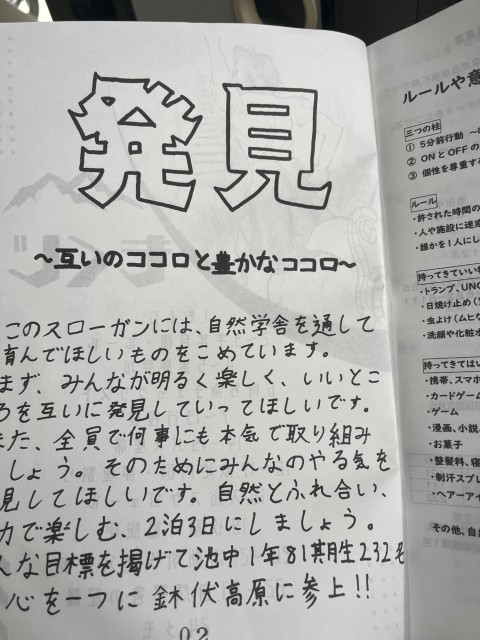 発見
～互いのココロと豊かなココロ～
このスローガンには、自然学舎を通して
育んでほしいものをこめています。
まず、みんなが明るく楽しく、いいとこ
ろを互いに発見していってほしいです。
また、全員で何事にも本気で取り組み
しょう。そのためにみんなのやる気を
見してほしいです。自然とふれ合い、
力で楽しむ、2泊3日にしましょう。
んな目標を掲げて池中1年81期生232名
心を一つに鉢伏高原に参上!!
02
ルールや意
三つの柱
① 5分前行動 ～
② ONとOFFの
③ 個性を尊重す
ルール
・許された時間の
・人や施設に迷惑
・誰かを1人にし
持ってきていい
・トランプ、UNO
・日焼け止め(
・虫よけ(ムヒな
・洗顔や化粧水
持ってきてはい
・携帯、スマホ
・カードゲーム
・ゲーム
・漫画、小説、
・お菓子
・整髪料、
・制汗スプレ
・ヘアーアイ
その他、自